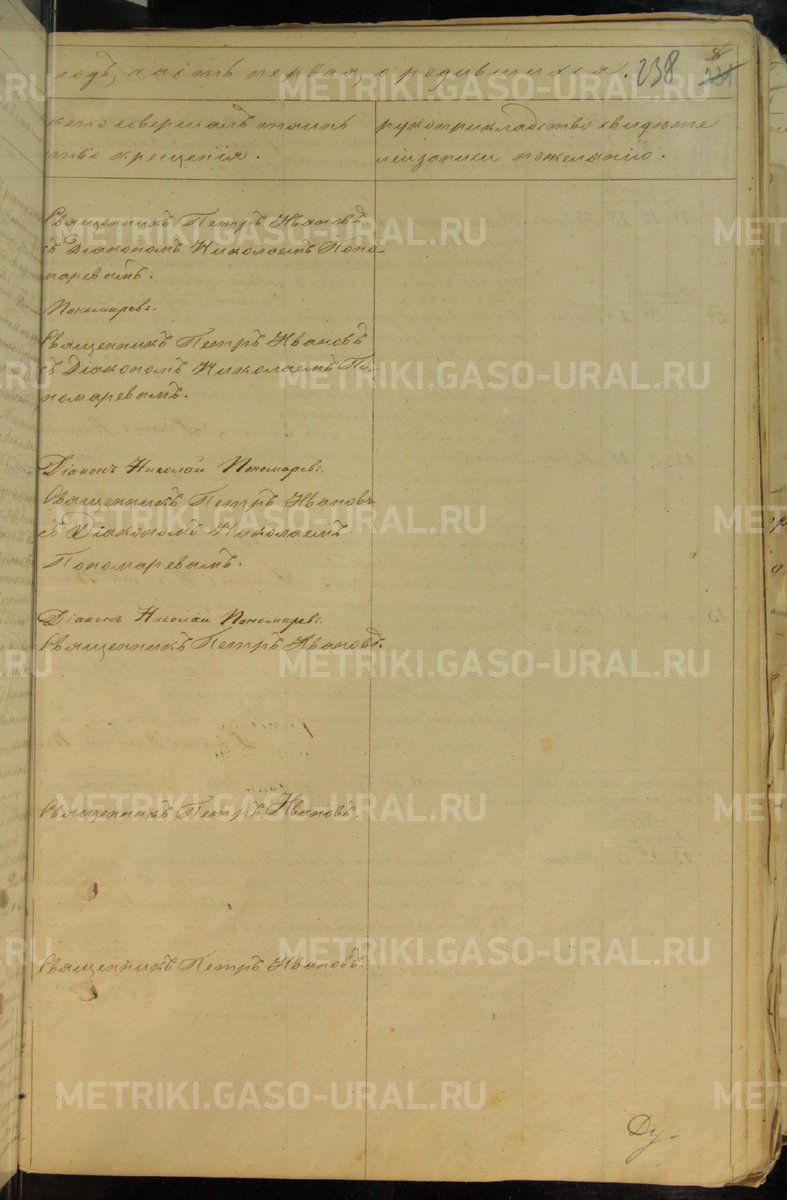 годъ, часть первая, о родившихся. 238
кто совершалъ таин
ство крещенія.
рукоприкладство свидѣте
лей записи по желанію.
Священникъ Петръ Ивановъ
съ Діакономъ Николаемъ Поно-
маревымъ.
Пономаревъ.
Священникъ Петръ Ивановъ
съ Діакономъ Николаемъ По-
номаревымъ.
Діаконъ Николай Пономаревъ.
Священникъ Петръ Ивановъ
съ Діакономъ Николаемъ
Пономаревымъ.
Діаконъ Николай Пономаревъ.
Священникъ Петръ Ивановъ.
Священникъ Петръ Ивановъ.
Священникъ Петръ Ивановъ.
Ду-
METRIKI.GASO-URAL.RU